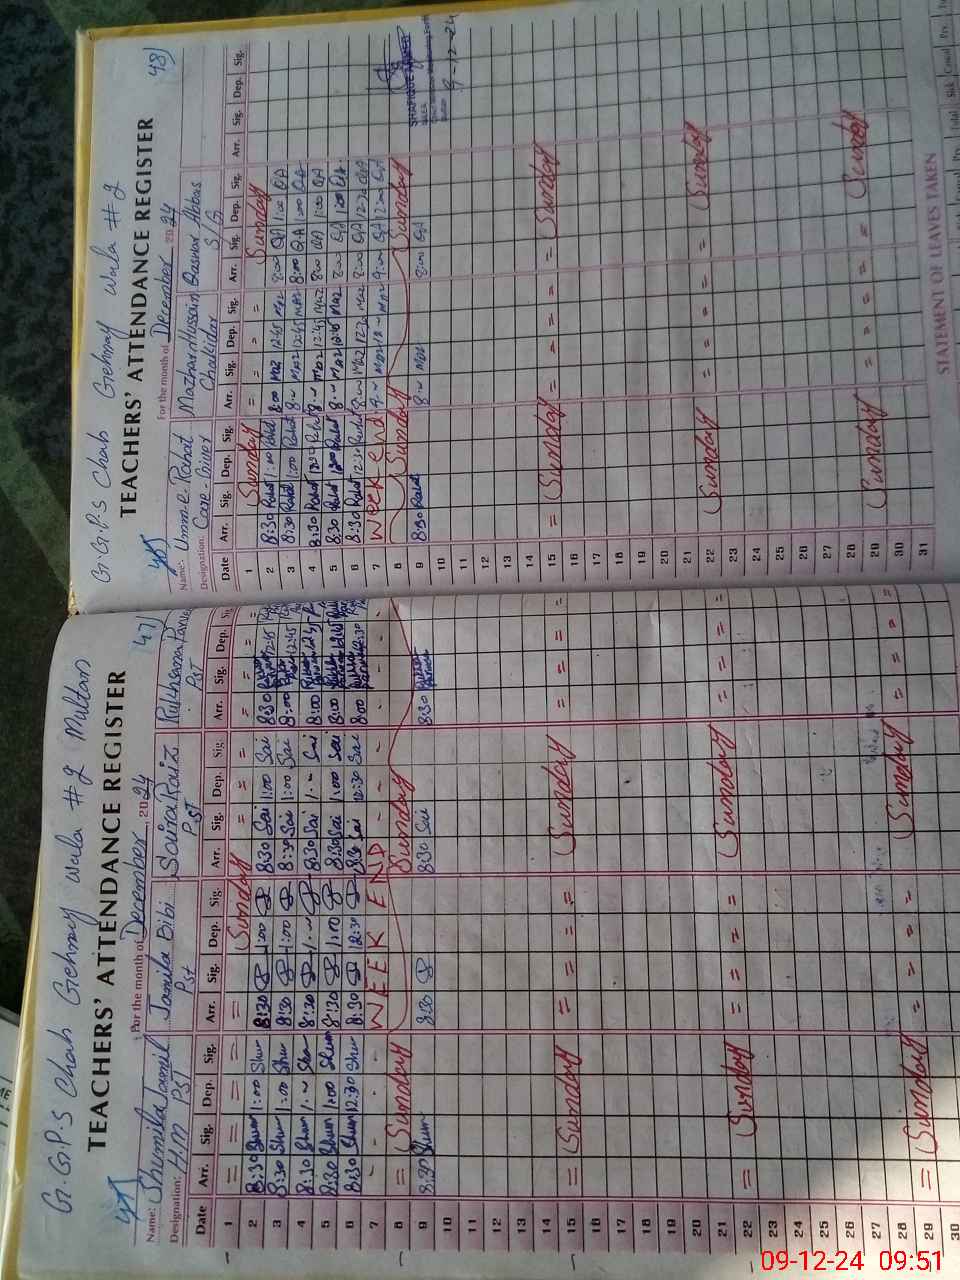 G.G.P.S Chah Gehnay Wala # 2 Multan 47)
TEACHERS' ATTENDANCE REGISTER
For the month of December 2024
Name: Shumila Jamil Jamila Bibi Saira Raiz Rukhsana Parveen
Designation: H.M PST Pst PST PST
Date Arr. Sig. Dep. Sig. Arr. Sig. Dep. Sig. Arr. Sig. Dep. Sig. Arr. Sig. Dep. Sig.
1 = = = = = Sunday = = = = = =
2 8:30 Shum 1:00 Shum 8:30 1:00 8:30 Sai 1:00 Sai 8:30 12:45
3 8:30 Shum 1:00 Shum 8:30 1:00 8:30 Sai 1:00 Sai 8:00 12:45
4 8:30 Shum 1:~ Shum 8:30 1:~ 8:30 Sai 1:~ Sai 8:00 12:45
5 8:30 Shum 1:00 Shum 8:30 1:00 8:30 Sai 1:00 Sai 8:00 12:45
6 8:30 Shum 12:30 Shum 8:30 12:30 8:30 Sai 12:30 Sai 8:00 12:30
7 - - - - WEEK END - - - - - -
8 = Sunday Sunday
9 8:30 Shum 8:30 8:30 Sai 8:30
10
11
12
13
14
15 = Sunday = = = = Sunday = = = =
16
17
18
19
20
21
22 = Sunday = = = = Sunday = = = =
23
24
25
26
27
28
29 = Sunday = = = = Sunday = = = =
30
G.G.P.S Chah Gehnay Wala # 2 48)
TEACHERS' ATTENDANCE REGISTER
For the month of December 2024
Name: Umm-e-Rahat Mazhar Hussain Qaswar Abbas
Designation: Care-Giver Chokidar S/G
Date Arr. Sig. Dep. Sig. Arr. Sig. Dep. Sig. Arr. Sig. Dep. Sig. Arr. Sig. Dep. Sig.
1 Sunday = = = = Sunday
2 8:30 Rahat 1:00 Rahat 8:00 Maz 12:45 Maz 8:00 QA 1:00 QA
3 8:30 Rahat 1:00 Rahat 8:~ Maz 12:45 Maz 8:00 QA 1:00 QA
4 8:30 Rahat 12:30 Rahat 8:~ Maz 12:45 Maz 8:00 QA 1:00 QA
5 8:30 Rahat 1:00 Rahat 8:~ Maz 12:45 Maz 8:00 QA 1:00 QA
6 8:30 Rahat 12:30 Rahat 8:~ Maz 12:30 Maz 8:00 QA 12:30 QA
7 Week end 9:~ Maz 12:~ Maz 9:00 QA 12:00 QA
8 Sunday Sunday
9 8:30 Rahat 8:~ Maz 8:00 QA
10
11
12
13
14
15 = Sunday = = = = Sunday
16
17
18
19
20
21
22 Sunday = = = = Sunday
23
24
25
26
27
28
29 Sunday = = = = Sunday
30
31
9-12-24
STATEMENT OF LEAVES TAKEN
Total Sick Casual Prv.
09-12-24 09:51